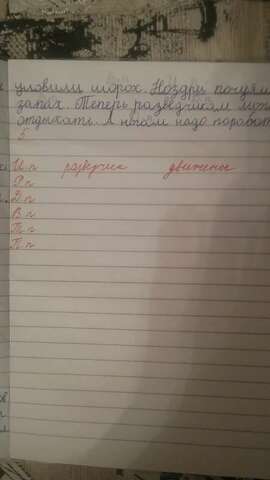 уловили шорох. Ноздри почуяли
запах. Теперь разведчикам
отдыхать. А ногам надо поработ
5
И.п разведчик движение
Р.п
Д.п
В.п
Т.п
П.п